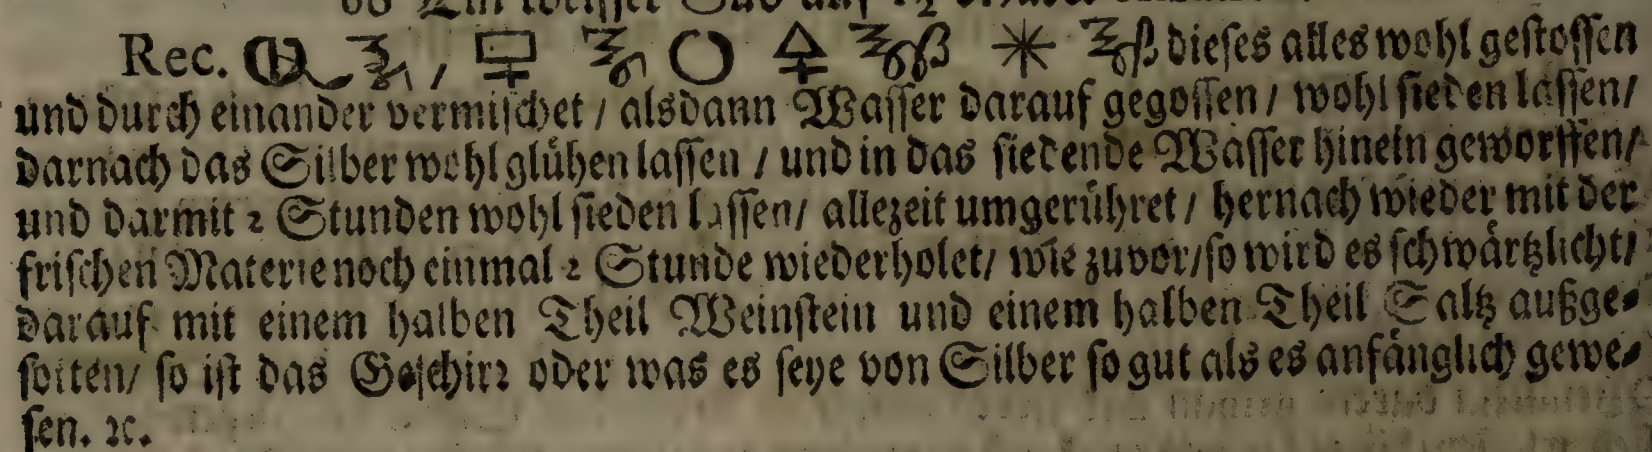 Rec. dieses alles wohl gestossen
und durch einander vermischet / alsdann Wasser darauf gegossen / wohl sieden lassen /
darnach das Silber wohl glühen lassen / und in das siedende Wasser hinein geworffen /
und darmit 2 Stunden wohl sieden lassen / allezeit umgerühret / hernach wieder mit der
frischen Materie noch einmal 2 Stunde wiederholet / wie zuvor / so wird es schwärtzlicht /
darauf mit einem halben Theil Weinstein und einem halben Theil Saltz außge-
sotten / so ist das Geschirr oder was es seye von Silber so gut als es anfänglich gewe-
sen. ꝛc.